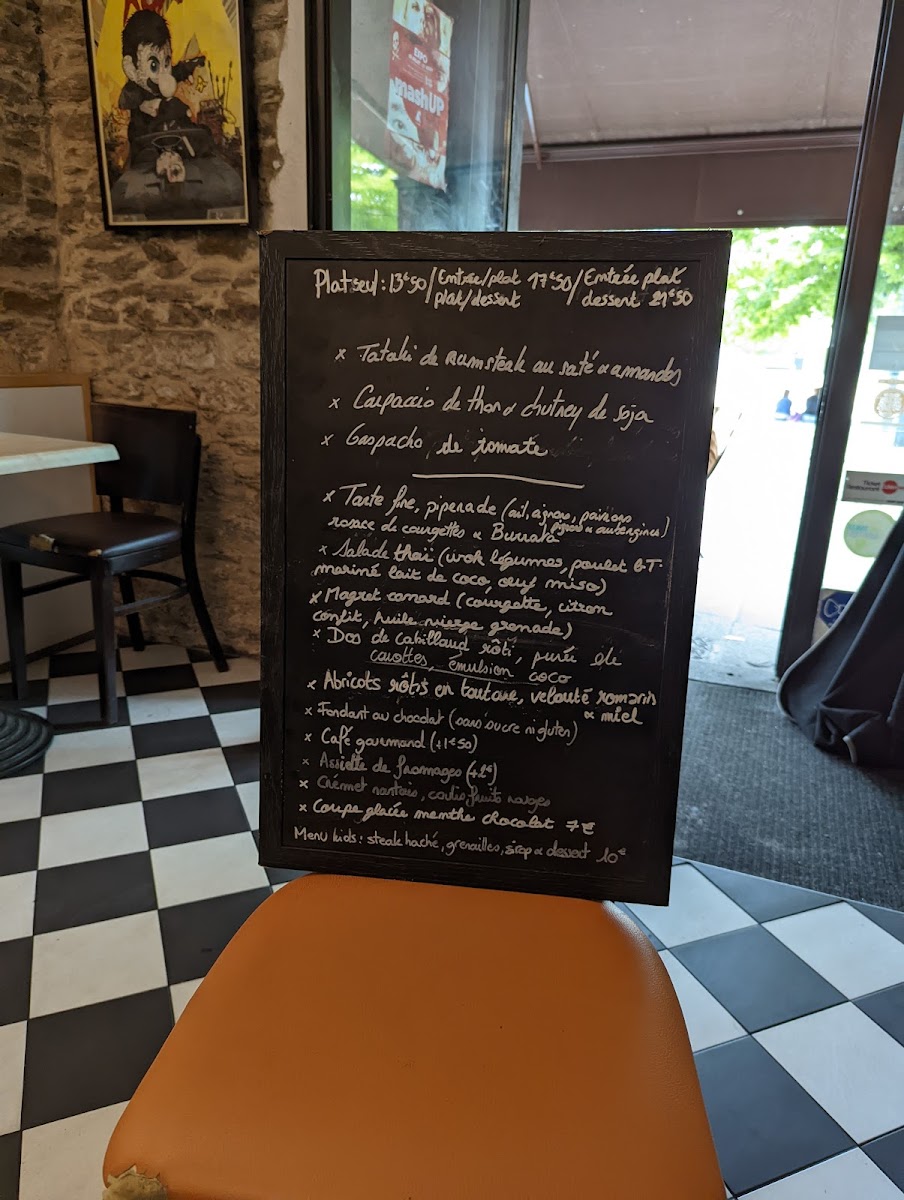 EXPO
MashUp
Plat seul : 13€50 / Entrée/plat 17€50 / Entrée plat
plat/dessert dessert 21€50
x Tataki de Rumsteak au saté & amandes
x Carpaccio de thon & chutney de soja
x Gaspacho de tomate
x Tarte fine, piperade (ail, oignons, poivrons
rosace de courgettes & Burrata pignons & aubergines)
x Salade thaï (wok légumes, poulet B.T.
mariné lait de coco, œuf miso)
x Magret canard (courgette, citron
confit, huile vierge grenade)
x Dos de cabillaud rôti, purée de
carottes, émulsion coco
x Abricots rôtis en tartare, velouté romarin
& miel
x Fondant au chocolat (sans sucre ni gluten)
x Café gourmand (+1€50)
x Assiette de fromages (+2€)
x Crémet nantais, coulis fruits rouges
x Coupe glacée menthe chocolat 7€
Menu kids : steak haché, grenailles, sirop & dessert 10€
Ticket
Restaurant